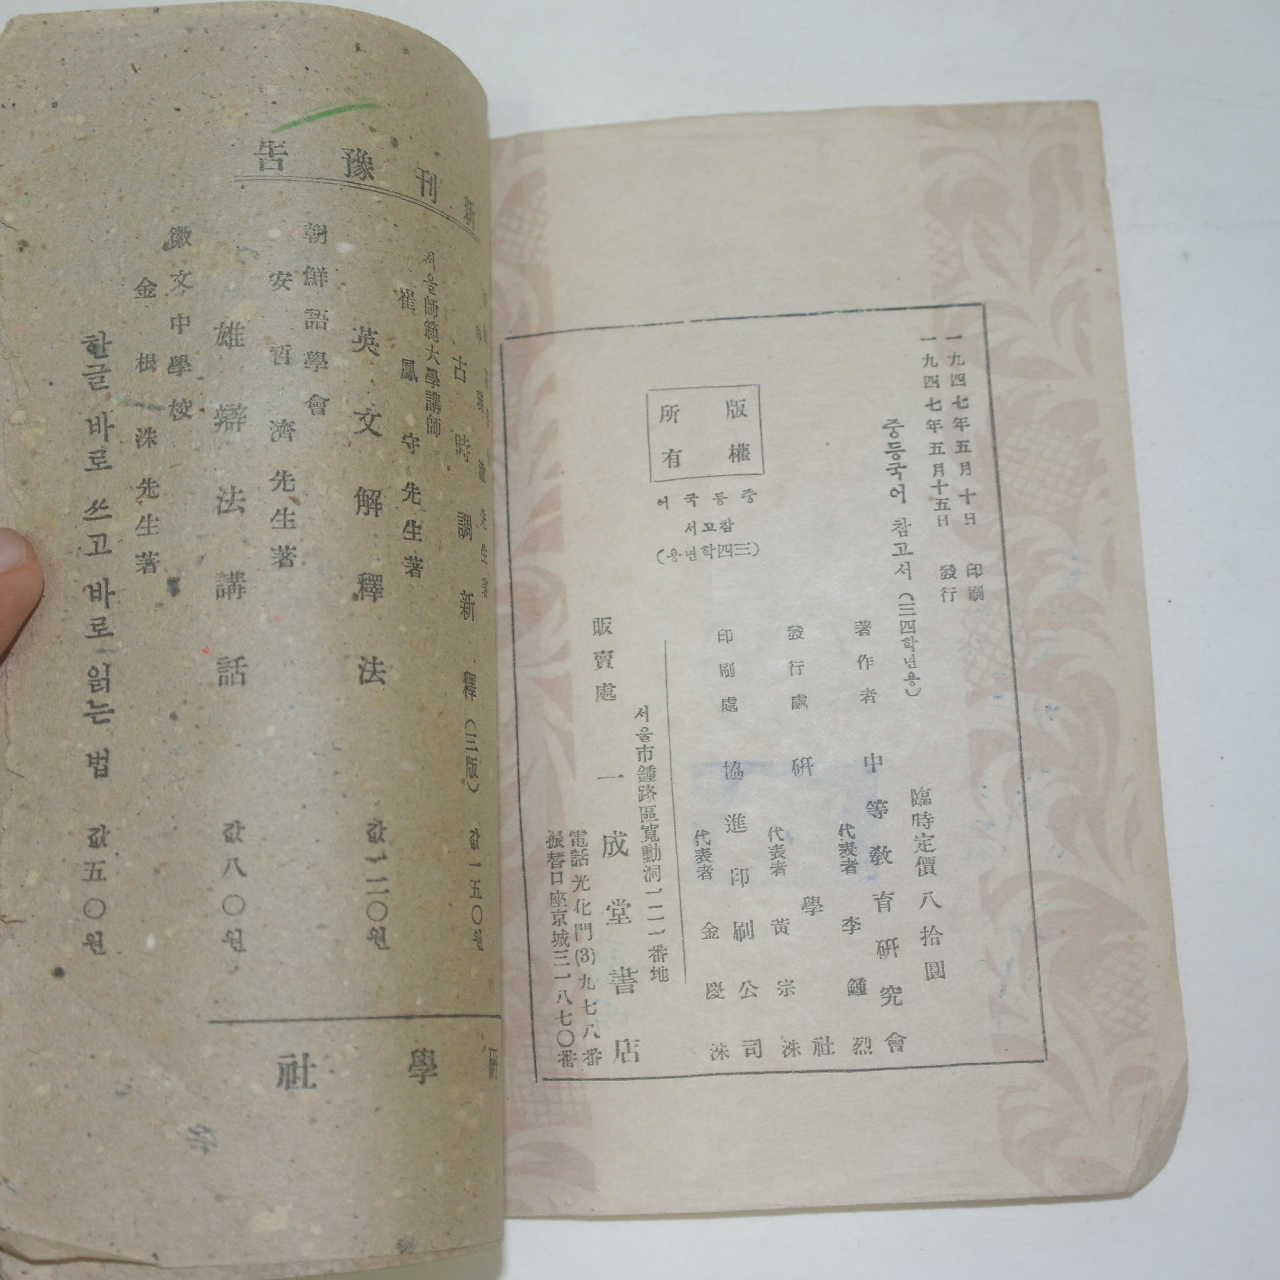 一九四七年五月 十 日 印刷
一九四七年五月十五日 發行
중등국어 참고서 (三四학년용)
臨時定價 八拾圓
著作者 中等敎育硏究會
代表者 李鍾烈
發行處 硏學社
代表者 黃宗洙
印刷處 協進印刷公司
代表者 金慶洙
版權
所有
중등국어
참고서
(三四학년용)
서울市鍾路區寬勳洞一二一番地
販賣處 一成堂書店
電話光化門(3)九七八番
振替口座京城三一八七〇番
新刊豫告
先生著
古時調新釋 (三版) 값一五〇원
서울師範大學講師
崔鳳守先生著
英文解釋法 값一二〇원
朝鮮語學會
安晢濟先生著
雄辯法講話 값八〇원
徽文中學校
金根洙先生著
한글 바로 쓰고 바로 읽는 법 값五〇원
硏學社